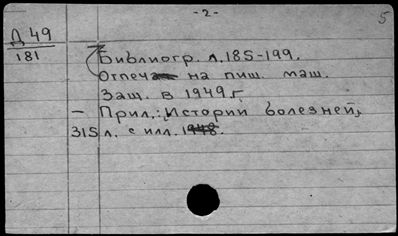 - 2 -
5
Д 49
181
Библиогр. л. 185-199.
Отпеча на пиш. маш.
Защ. в 1949 г.
— Прил.: Истории болезней,
315 л. с илл. 1948.